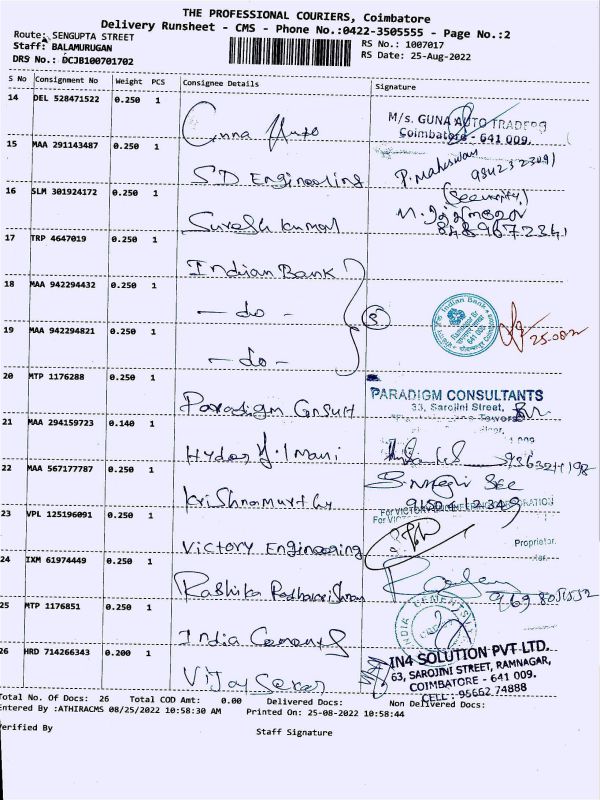 THE PROFESSIONAL COURIERS, Coimbatore
Delivery Runsheet - CMS - Phone No.:0422-3505555 - Page No.:2
Route: SENGUPTA STREET
Staff: BALAMURUGAN
DRS No.: DCJB100701702
RS No.: 1007017
RS Date: 25-Aug-2022
S No Consignment No Weight PCS Consignee Details Signature
14 DEL 528471522 0.250 1
M/s. GUNA AUTO TRADERS
Coimbatore - 641 009.
15 MAA 291143487 0.250 1
SD Engineeling P. Maheswari
(Security)
16 SLM 301924172 0.250 1
Suresh Kumar
8489672341
17 TRP 4647019 0.250 1
Indian Bank
18 MAA 942294432 0.250 1
- do -
Indian Bank
641 009
19 MAA 942294821 0.250 1
- do -
20 MTP 1176288 0.250 1
Paradigm Consult
PARADIGM CONSULTANTS
33, Sarojini Street,
Towers
21 MAA 294159723 0.140 1
Hydar
22 MAA 567177787 0.250 1
Krishnamurthy
23 VPL 125196091 0.250 1
Victory Engineering
For VICTORY ENGINEERING CORPORATION
Proprietor.
24 IXM 61974449 0.250 1
Rashika Radhakrishnan
25 MTP 1176851 0.250 1
India Cements
INDIA CEMENTS
26 HRD 714266343 0.200 1
Vijay Sekar
IN4 SOLUTION PVT LTD.
63, SAROJINI STREET, RAMNAGAR,
COIMBATORE - 641 009.
CELL : 95662 74888
Total No. Of Docs: 26 Total COD Amt: 0.00 Delivered Docs: Non Delivered Docs:
Entered By :ATHIRACMS 08/25/2022 10:58:30 AM Printed On: 25-08-2022 10:58:44
Verified By Staff Signature